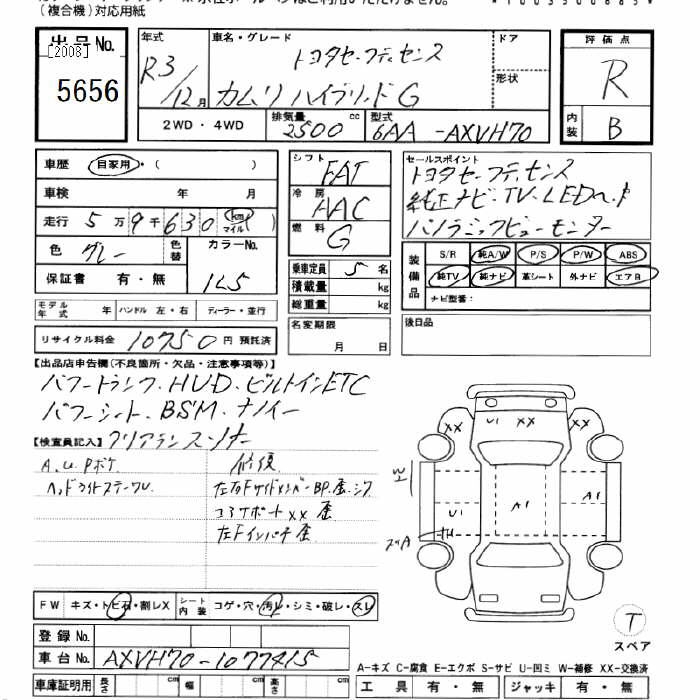 (複合機)対応用紙
出品No. [2008] 5656
年式 R3/12月
車名・グレード トヨタセーフティセンス カムリ ハイブリッド G
ドア
形状
2WD・4WD 排気量 2500 cc 型式 6AA-AXVH70
評価点 R
内装 B
車歴 自家用・( )
車検 年 月
走行 5万9千630 km マイル
色 グレー 色替 カラーNo.
保証書 有・無 1L5
シフト FAT
冷房 AAC
燃料 G
乗車定員 5名
積載量 kg
総重量 kg
名変期限 月 日
モデル年式 年 ハンドル 左・右 ディーラー・並行
リサイクル料金 10750 円 預託済
セールスポイント
トヨタセーフティセンス
純正ナビ・TV・LEDヘッド
パノラミックビューモニター
装備品 S/R 純A/W P/S P/W ABS
純TV 純ナビ 革シート 外ナビ エアB
ナビ型番:
後日品
【出品店申告欄(不良箇所・欠品・注意事項等)】
パワートランク・HUD・ビルトインETC
パワーシート・BSM・ナノイー
【検査員記入】クリアランスソナー
A.U.Pボケ
ヘッドライトステークル
修復
左右Fサイドメンバー BP.歪.シワ
コアサポート XX 歪
左Fインパネ 歪
U1 XX XX XX
A1
A1
U1
FW キズ・トビ石・割レX シート内装 コゲ・穴・汚レ・シミ・破レ・スレ
登録No.
車台No. AXVH70-1077415
車庫証明用 長さ cm 幅 cm 高さ cm
T
スペア
A-キズ C-腐食 E-エクボ S-サビ U-凹ミ W-補修 XX-交換済
工具 有・無 ジャッキ 有・無